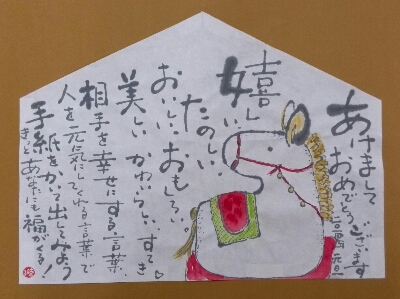 あけまして
おめでとうございます
二〇一四 元旦
嬉しい
たのしい
おいしい おもしろい。
美しい かわいらしい すてき。
相手を幸せにする言葉
人を元気にしてくれる言葉で
手紙をかいて出してみよう
きっとあなたにも福がくる!